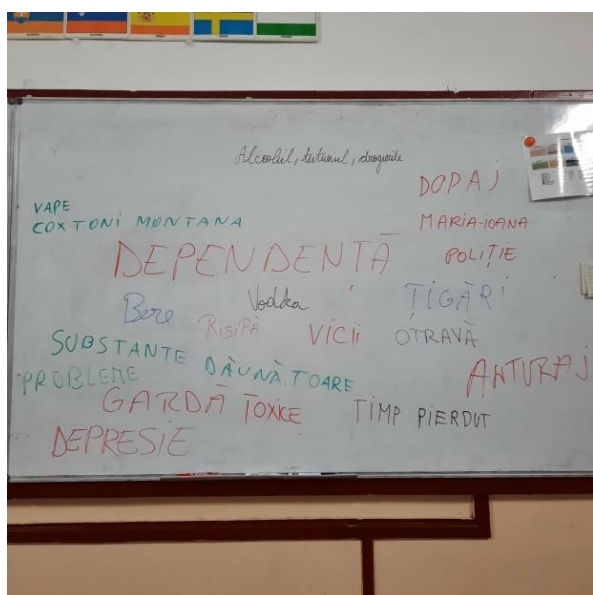 Alcoolul, tutunul, drogurile
DOPAJ
VAPE
COXTONI MONTANA
MARIA-IOANA
DEPENDENȚĂ
POLIȚIE
Bere
Vodka
ȚIGĂRI
RISIPĂ
VICII
OTRAVĂ
SUBSTANTE DĂUNĂTOARE
PROBLEME
ANTURAJ
GARDĂ TOXICE
TIMP PIERDUT
DEPRESIE